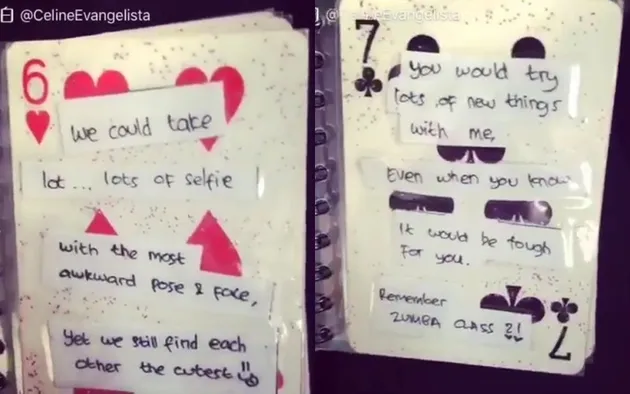 @CelineEvangelista
6
we could take
lot ... lots of selfie
with the most
awkward pose & face,
Yet we still find each
other the cutest
@CelineEvangelista
7
you would try
lots of new things
with me,
Even when you know
It would be tough
for you.
Remember
ZUMBA CLASS ?!
7